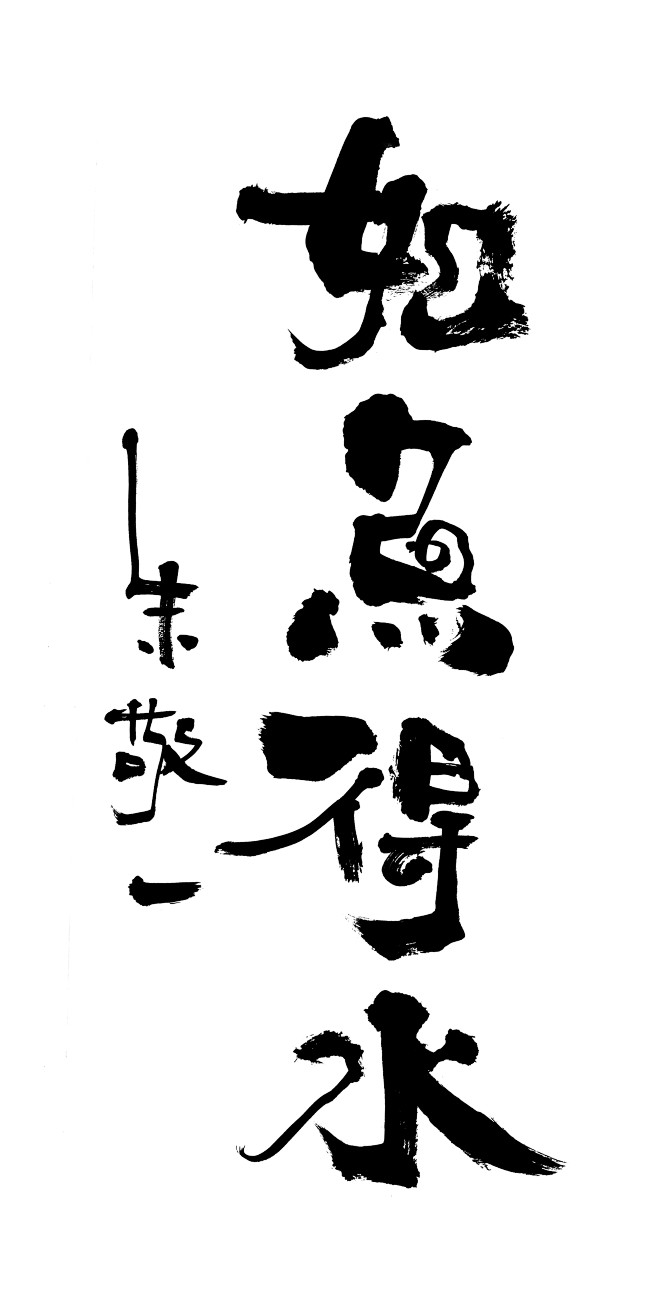 如魚得水
朱敬一